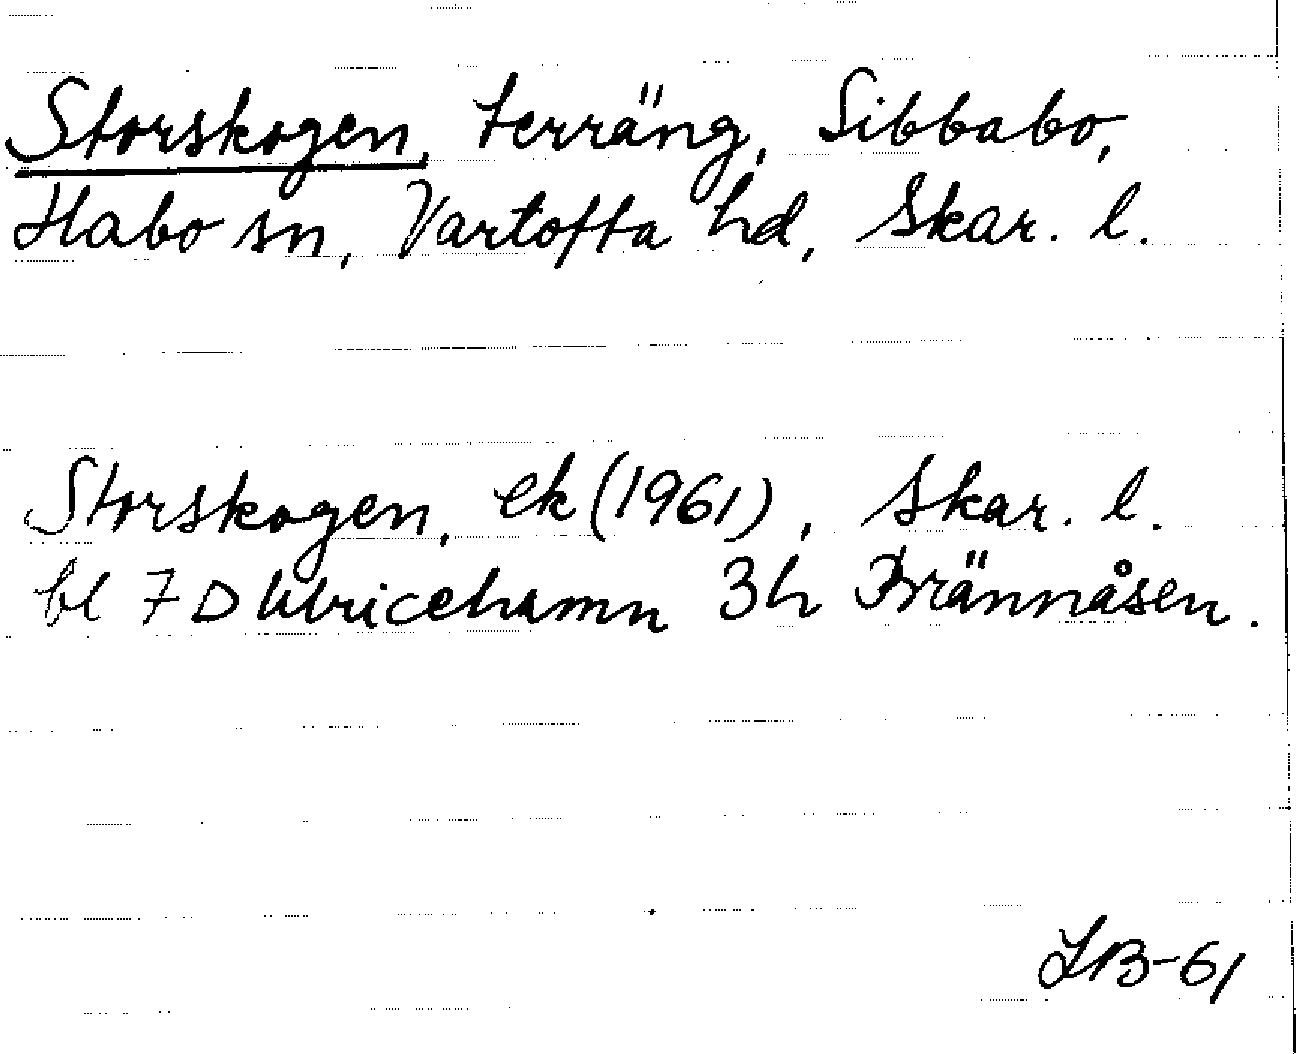 Storskogen, terräng, Sibbabo,
Habo sn, Vartofta hd, Skar. l.
Storskogen, ek (1961), Skar. l.
bl 7 D Ulricehamn 3h Brännåsen.
LB-61